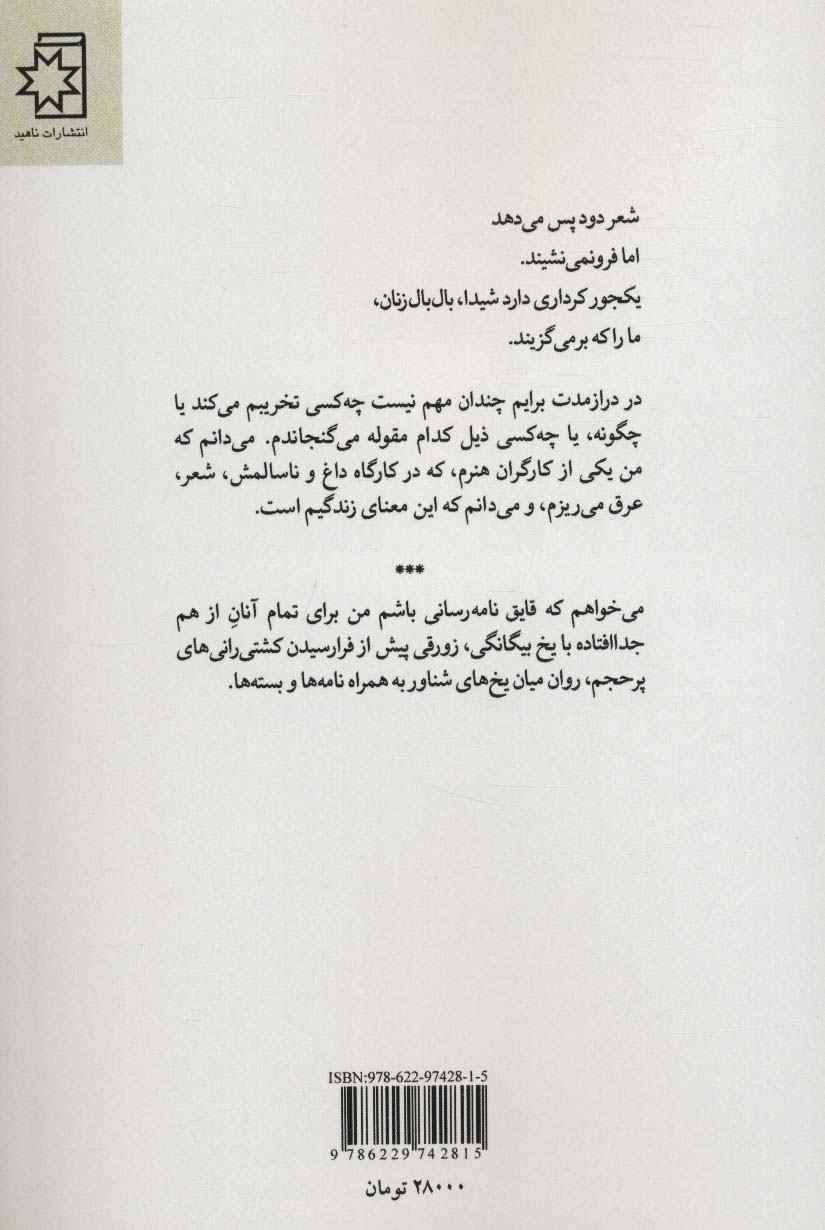 انتشارات ناهید
شعر دود پس می‌دهد
اما فرونمی‌نشیند.
یکجور کرداری دارد شیدا، بال‌بال‌زنان،
ما را که برمی‌گزیند.
در درازمدت برایم چندان مهم نیست چه‌کسی تخریبم می‌کند یا
چگونه، یا چه‌کسی ذیل کدام مقوله می‌گنجاندم. می‌دانم که
من یکی از کارگران هنرم، که در کارگاه داغ و ناسالمش، شعر،
عرق می‌ریزم، و می‌دانم که این معنای زندگیم است.
***
می‌خواهم که قایق نامه‌رسانی باشم من برای تمام آنانِ از هم
جداافتاده با یخ بیگانگی، زورقی پیش از فرارسیدن کشتی‌رانی‌های
پرحجم، روان میان یخ‌های شناور به همراه نامه‌ها و بسته‌ها.
ISBN:978-622-97428-1-5
9 786229 742815
۲۸۰۰۰ تومان